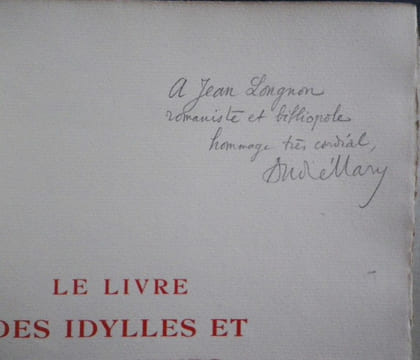 A Jean Longnon
romaniste et bibliopole
hommage très cordial,
André Mary
LE LIVRE
DES IDYLLES ET